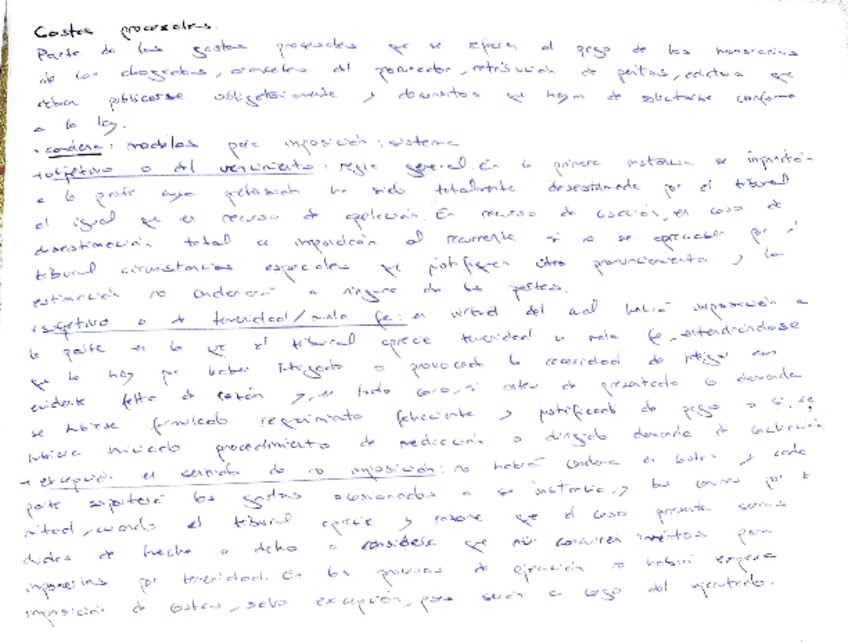 Costas procesales.
Parte de los gastos procesales que se refieren al pago de los honorarios
de los abogados, aranceles del procurador, retribución de peritos, edictos que
deban publicarse obligatoriamente y documentos que hayan de solicitarse conforme
a la ley.
• condena: modelos para imposición: sistema
objetivo o del vencimiento: regla general. En la primera instancia se impondrán
a la parte cuya pretensión ha sido totalmente desestimada por el tribunal
al igual que en recurso de apelación. En recurso de casación, en caso de
desestimación total se impondrán al recurrente si no se aprecian por
tribunal circunstancias especiales que justifiquen otro pronunciamiento y la
estimación no condenará a ninguna de las partes.
subjetivo o de temeridad/mala fe: en virtud del cual habrá imposición a
la parte en la que el tribunal aprecie temeridad o mala fe, entendiéndose
que la hay por haber litigado o provocado la necesidad de litigar con
evidente falta de razón y, en todo caso, si antes de presentada la demanda
se hubiese formulado requerimiento fehaciente y justificado de pago o si se
hubiera iniciado procedimiento de mediación o dirigido demanda de conciliación
excepción en sentido de no imposición: no habrá condena en costas y cada
parte soportará los gastos ocasionados a su instancia, y los comunes por
mitad, cuando el tribunal aprecie y razone que el caso presenta serias
dudas de hecho o dcho o considere que no concurren méritos para
imponerlas por temeridad. En los procesos de ejecución no habrá expresa
imposición de costas, salvo excepción, pues serán a cargo del ejecutado.